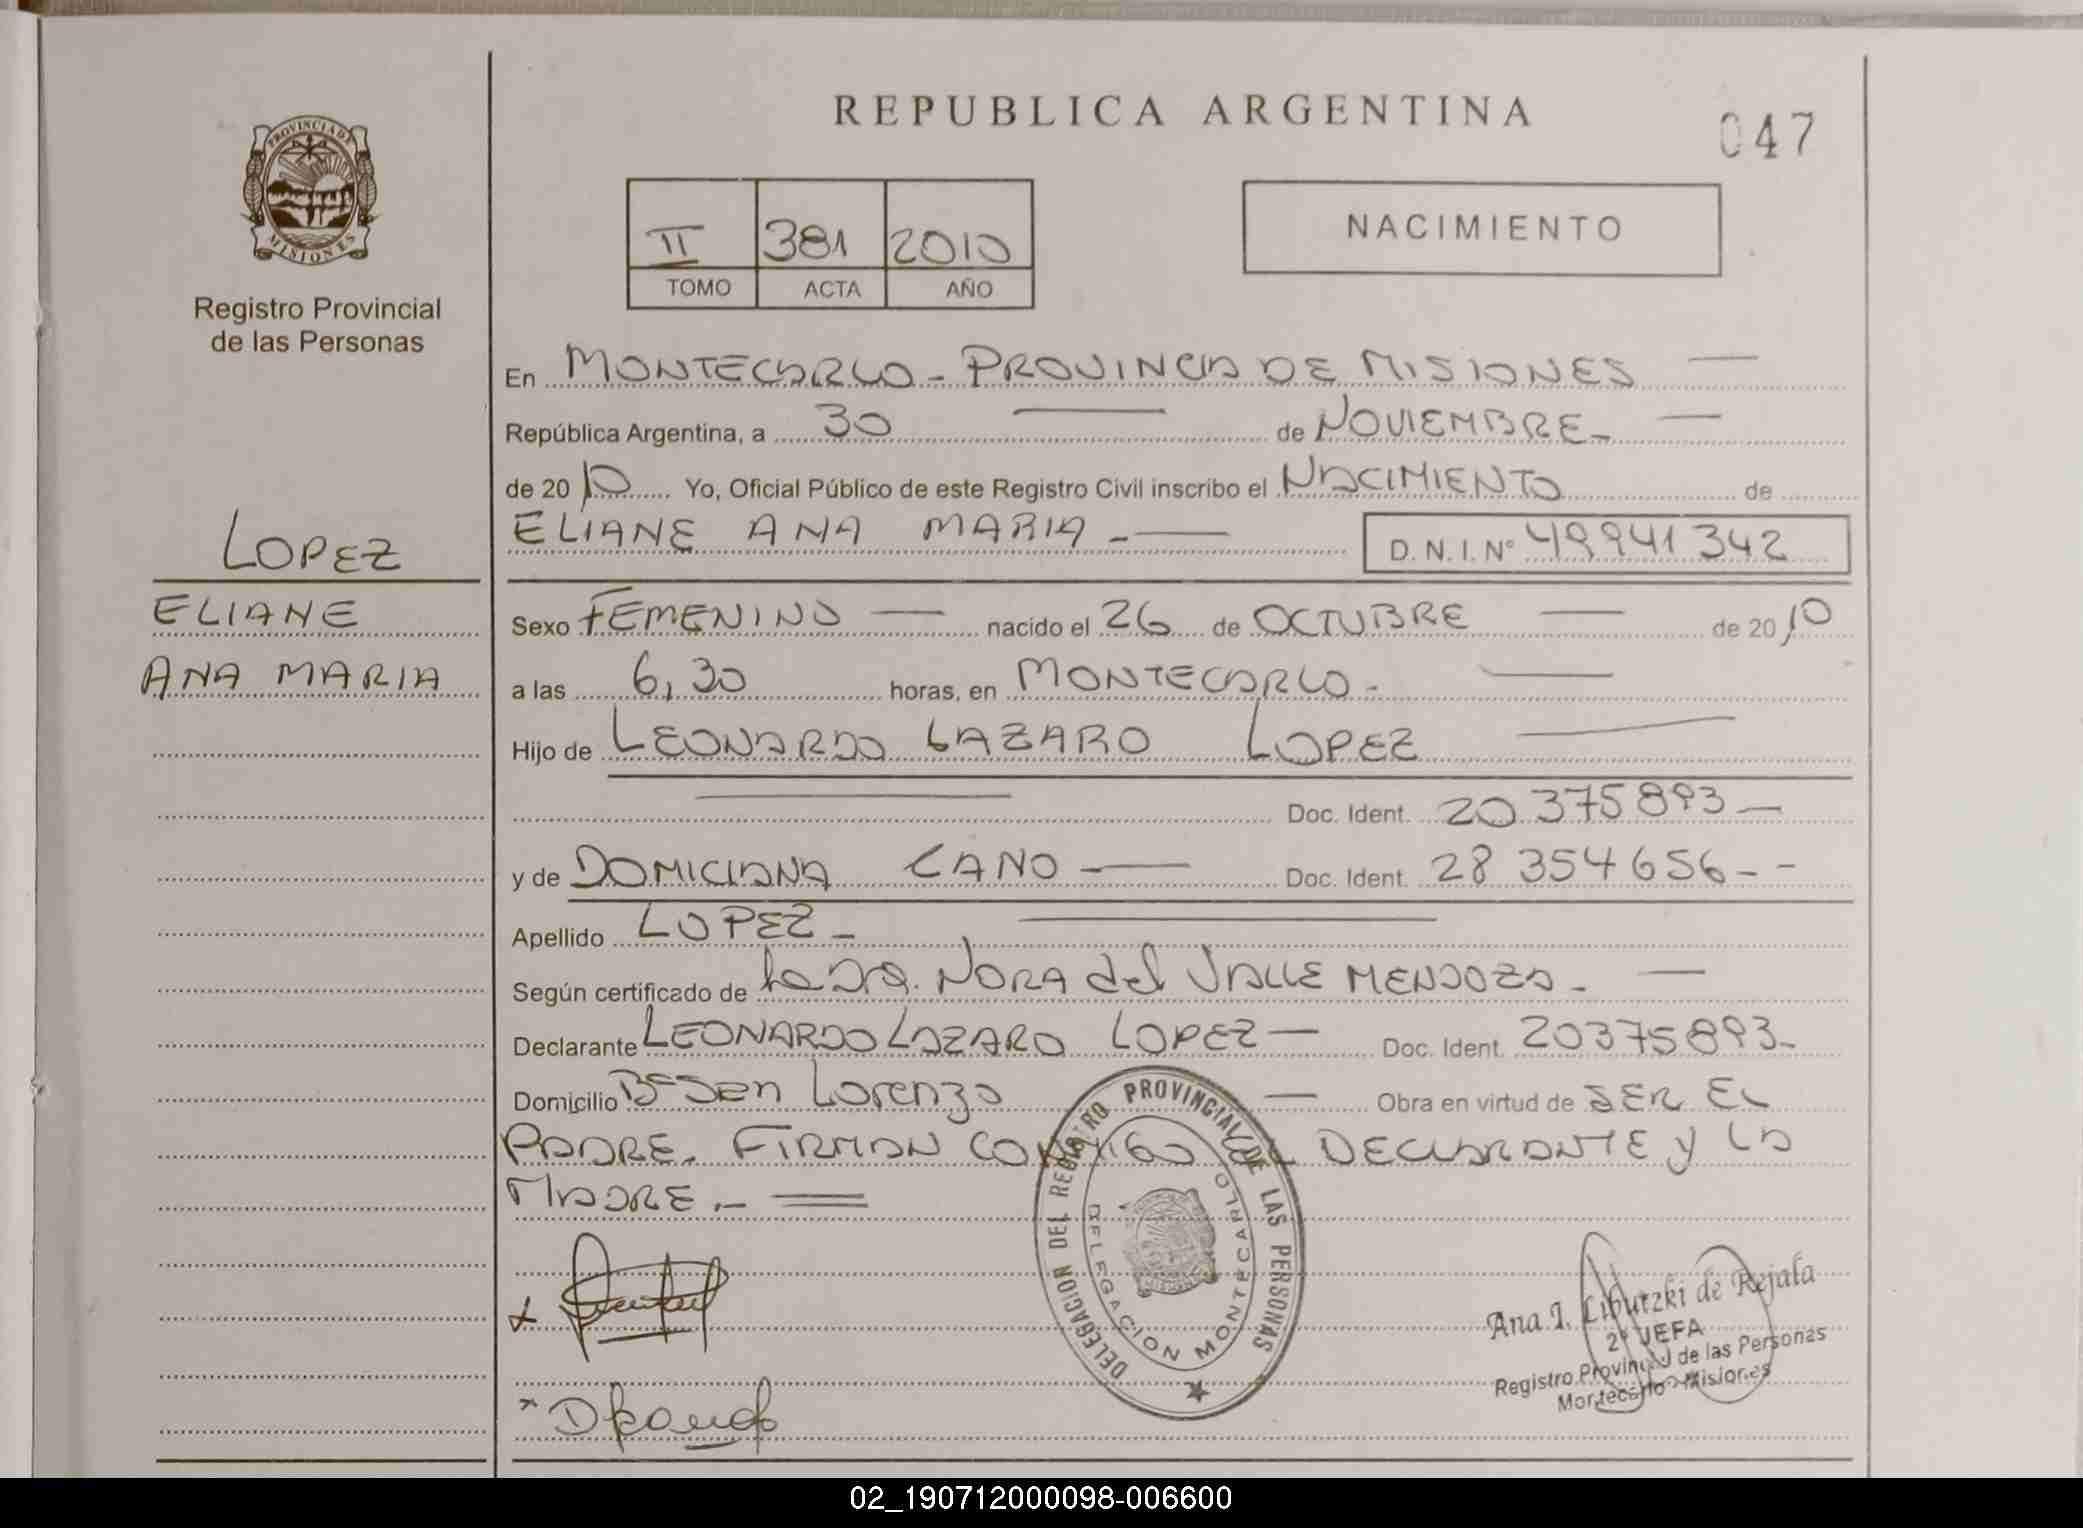 REPUBLICA ARGENTINA
047
PROVINCIA DE
MISIONES
Registro Provincial
de las Personas
II 381 2010
TOMO ACTA AÑO
NACIMIENTO
En MONTECARLO - PROVINCIA DE MISIONES —
República Argentina, a 30 — de NOVIEMBRE - —
de 2010 Yo, Oficial Público de este Registro Civil inscribo el NACIMIENTO de
ELIANE ANA MARIA - — D. N. I. N° 49941342
LOPEZ
ELIANE
ANA MARIA
Sexo FEMENINO — nacido el 26 de OCTUBRE — de 2010
a las 6,30 horas, en MONTECARLO - —
Hijo de LEONARDO LAZARO LOPEZ —
— Doc. Ident. 20 375893 —
y de DOMICIANA CANO — Doc. Ident. 28 354656 - -
Apellido LOPEZ - —
Según certificado de la Dra. NORA del VALLE MENDOZA - —
Declarante LEONARDO LAZARO LOPEZ — Doc. Ident. 20375893 -
Domicilio B° San Lorenzo — Obra en virtud de SER EL
PADRE. FIRMAN CONMIGO EL DECLARANTE Y LA
MADRE .- =
DELEGACION DEL REGISTRO PROVINCIAL DE LAS PERSONAS
DELEGACION MONTECARLO
Ana I. Liputzki de Rejala
2° JEFA
Registro Provincial de las Personas
Montecarlo - Misiones
02_190712000098-006600